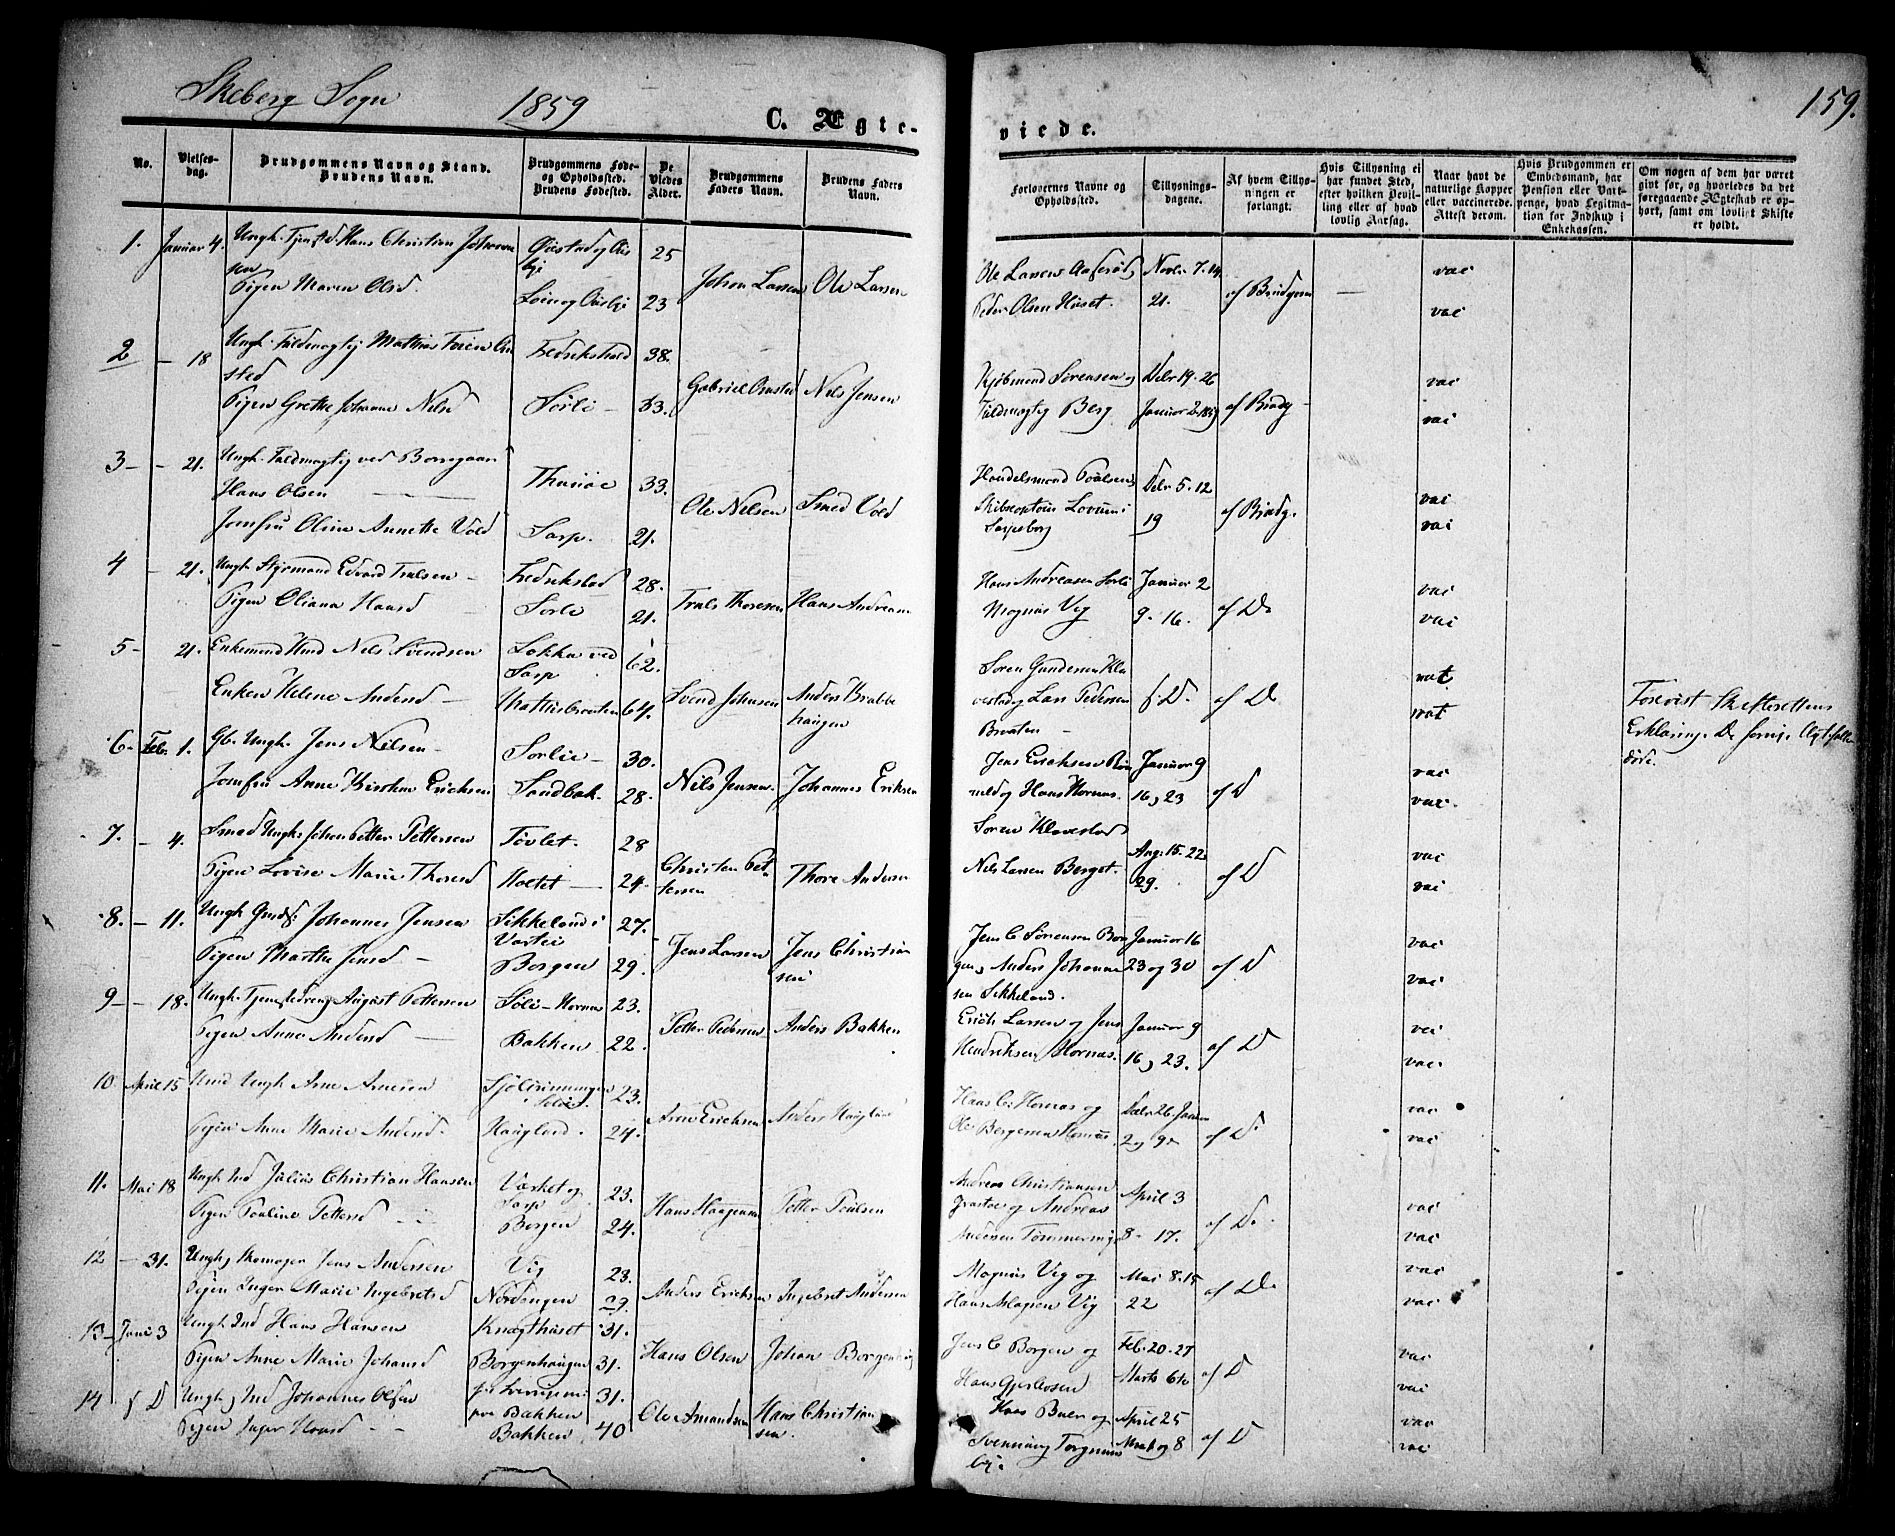 Skeberg Sogn 1859 C. Ægte-
viede. 159.
No.
Vielses-
dag.
Brudgommens Navn og Stand.
Brudens Navn.
Brudgommens Føde-
og Opholdssted.
Brudens Fødested.
De
Viedes
Alder.
Brudgommens
Faders Navn.
Brudens Faders
Navn.
Forlovernes Navne og
Opholdssted.
Tillysnings-
dagene.
Af hvem Tillys-
ningen er
forlangt.
Hvis Tillysning ei
har fundet Sted,
efter hvilken Bevil-
ling eller af hvad
lovlig Aarsag.
Naar havt de
naturlige Kopper
eller vaccinerede.
Attest derom.
Hvis Brudgommen er
Embedsmand, har
Pension eller Vart-
penge, hvad Legitima-
tion for Indskud i
Enkekassen.
Om nogen af dem har været
gift før, og hvorledes da det
foregaaende Ægteskab er op-
hørt, samt om lovligt Skifte
er holdt.
1. Januar 4. Ungk. Hans Christian Johann
sen 25 Johan Larsen Ole Larsen
Pigen Maren Olsd. 23
Ole Larsen Novbr 7. 14
Peder Olsen Huset. 21. af Brudgom — vac
vac
2 — 18 Ungk. Fuldmægtig Mathias
sted Fredrikshald 38.
Pigen Grethe Johanne Nilsd Sørli — 33. Gabriel Nils Jensen
Kjöbmand Sørensen og Debr 19. 26
Fuldmægtig Berg Januar 2. af Brudg — vac
vac
3 — — 21. Ungk. Fuldmægtig ved Borregaar
Hans Olsen — Thunøe 33.
Jomfru Oline Annette Vold Sarp. 21. Ole Nilsen Smed Vold
Handelsmand Poulsen Debr 5. 12
Lovum i
Sarpsborg 19 af Brudg. vac
vac
4 — 21. Ungk. Styrmand Edvard Trulsen — Fredrikstad 28.
Pigen Oliana Hansd — Sørli 21. Truls Thoresen Hans Andreasen
Hans Andreasen Sørli Januar 2
Magnus Vig 9. 16. af Do vac
vac
5 — 21. Enkemand Nils Svendsen Løkka ved
Sarp 62.
Enken Helene Andersd — Mattisbraaten 64. Svend Johnsen Anders Brabbe
haugen
Søren Gundersen Kla
vestad og Lars Pedersen
Braaten — f. D. af D nat.
nat
Forevist Skifterettens
Erklæring. De forrige Ægtefolk
døde.
6 — Feb. 1. Ungk. Jens Nilsen — Sorlie — 30.
Jomfru Anne Erichsen Sandbak. 28. Nils Jensen. Johannes Eriksen
Jens Erichsen Januar 9
og Hans Hornæs. 16 og 23 af D vac
vac.
7. — 4. Smed Ungk. Johan Petter Pettersen Tövlet. 28
Pigen Lovise Marie Thoresd Holtet — 24. Christen Pet
tersen Thore Andersen
Søren Klavestad
Nils Larsen Berget. Aug. 15. 22
29. af D vac
vac
8. — 11. Ungk. Johannes Jensen Sikkeland i
Vartei 27.
Pigen Marthe Jensd — Borgen 29. Jens Larsen Jens Christian
sen
Jens C Sørensen Bor Januar 16
gen, Anders Johanne 23 og 30 af D
sen Sikkeland. vac
vac
9 — — 18. Ungk. August Pettersen Sôli — Hornæs 23.
Pigen Anne Andersd — Bakken 22. Petter Pedersen Anders Bakken
Erich Larsen og Jens Januar 9
Hendriksen Hornæs. 16, 23. af D vac
vac.
10. April 15 Ungk Arne Arnesen 23.
Pigen Anne Marie Andersd. Haugland. 24. Arne Erichsen Anders Haugland
Hans C. Hornæs og Debr 26. Januar
Ole Borgersen Hornæs. 2 og 9de af D. vac
vac
11. Mai 18 Ungk Ind Julius Christian Hansen Værket og
Sarp 23.
Pigen Pauline Pettersd — Borgen 24. Hans Haagensen Petter Poulsen
Andreas Christiansen
og Andreas April 3
Andersen Tømmermyr 8 — 17. af D. vac
vac
12 — 31. Ungk, Skomager Jens Andersen Vig 23.
Pigen Inger Marie Ingebretsd Nordengen 29. Anders Ericksen Ingebret Andersen
Magnus Vig og Mai 8. 15
Hans Vig 22 af Do vac
vac
13 — Juni 3 Ungk. Ind Hans Hansen Knægthuset 31.
Pigen Anne Marie Johansd Borgenhaugen 31. Hans Olsen Johan Borgenhaug
Jens C Borgen og Feb. 20. 27
Hans Marts 6te af D vac
vac
14 f D Ungk, Ind Johannes Olsen 31.
Pigen Inger Hansd — — paa Bakken
Bakken 40 Ole Amundsen Hans Christian
sen.
Hans Buer og April 25
Svenning Torgeirs
by. Mai 1 og 8 af D vac
vac